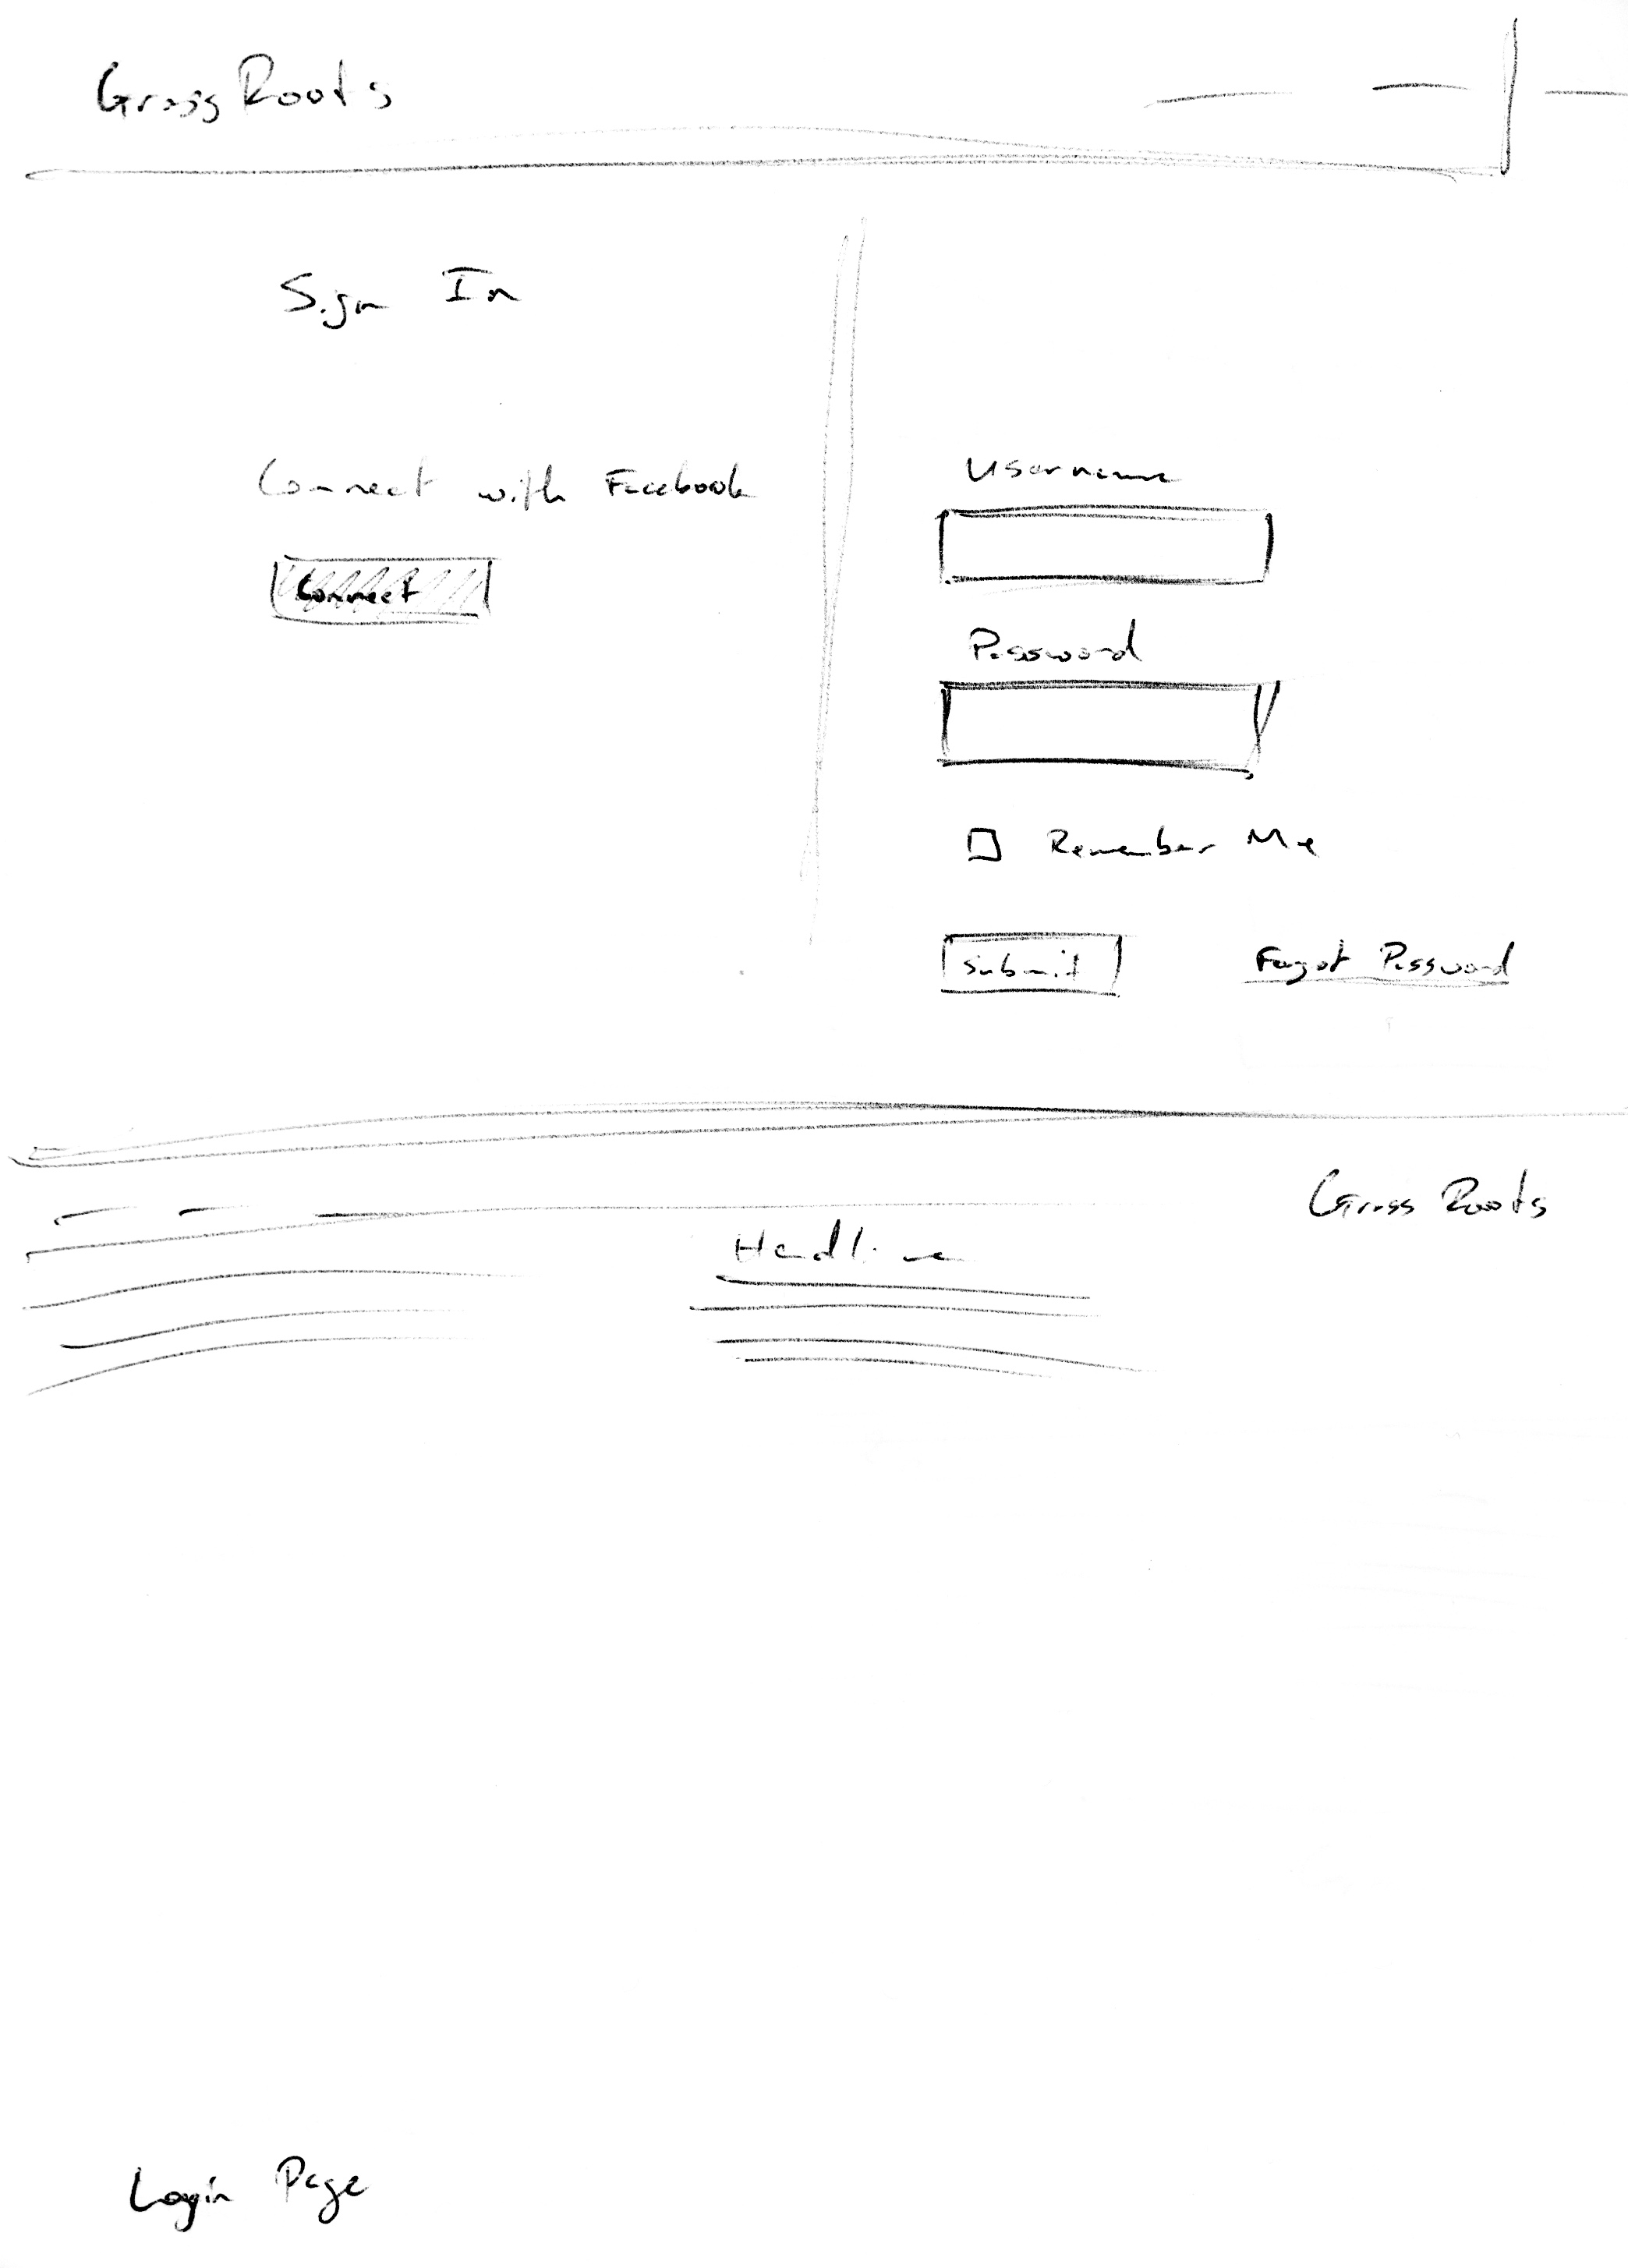 Grass Roots
Sign In
Connect with Facebook
Connect
Username
Password
Remember Me
Submit
Forgot Password
Grass Roots
Headline
Login Page